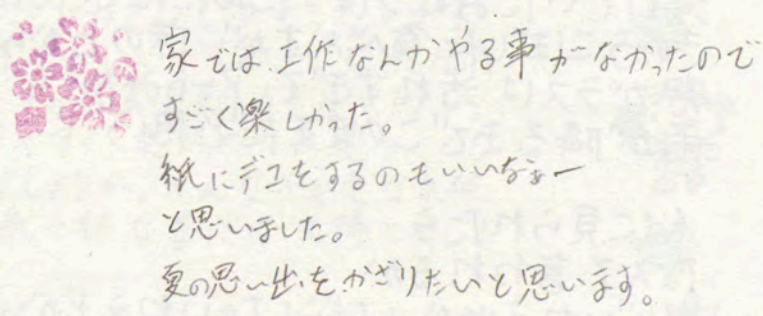 家では、工作なんかやる事がなかったので
すごく楽しかった。
紙にデコをするのもいいなぁー
と思いました。
夏の思い出をかざりたいと思います。